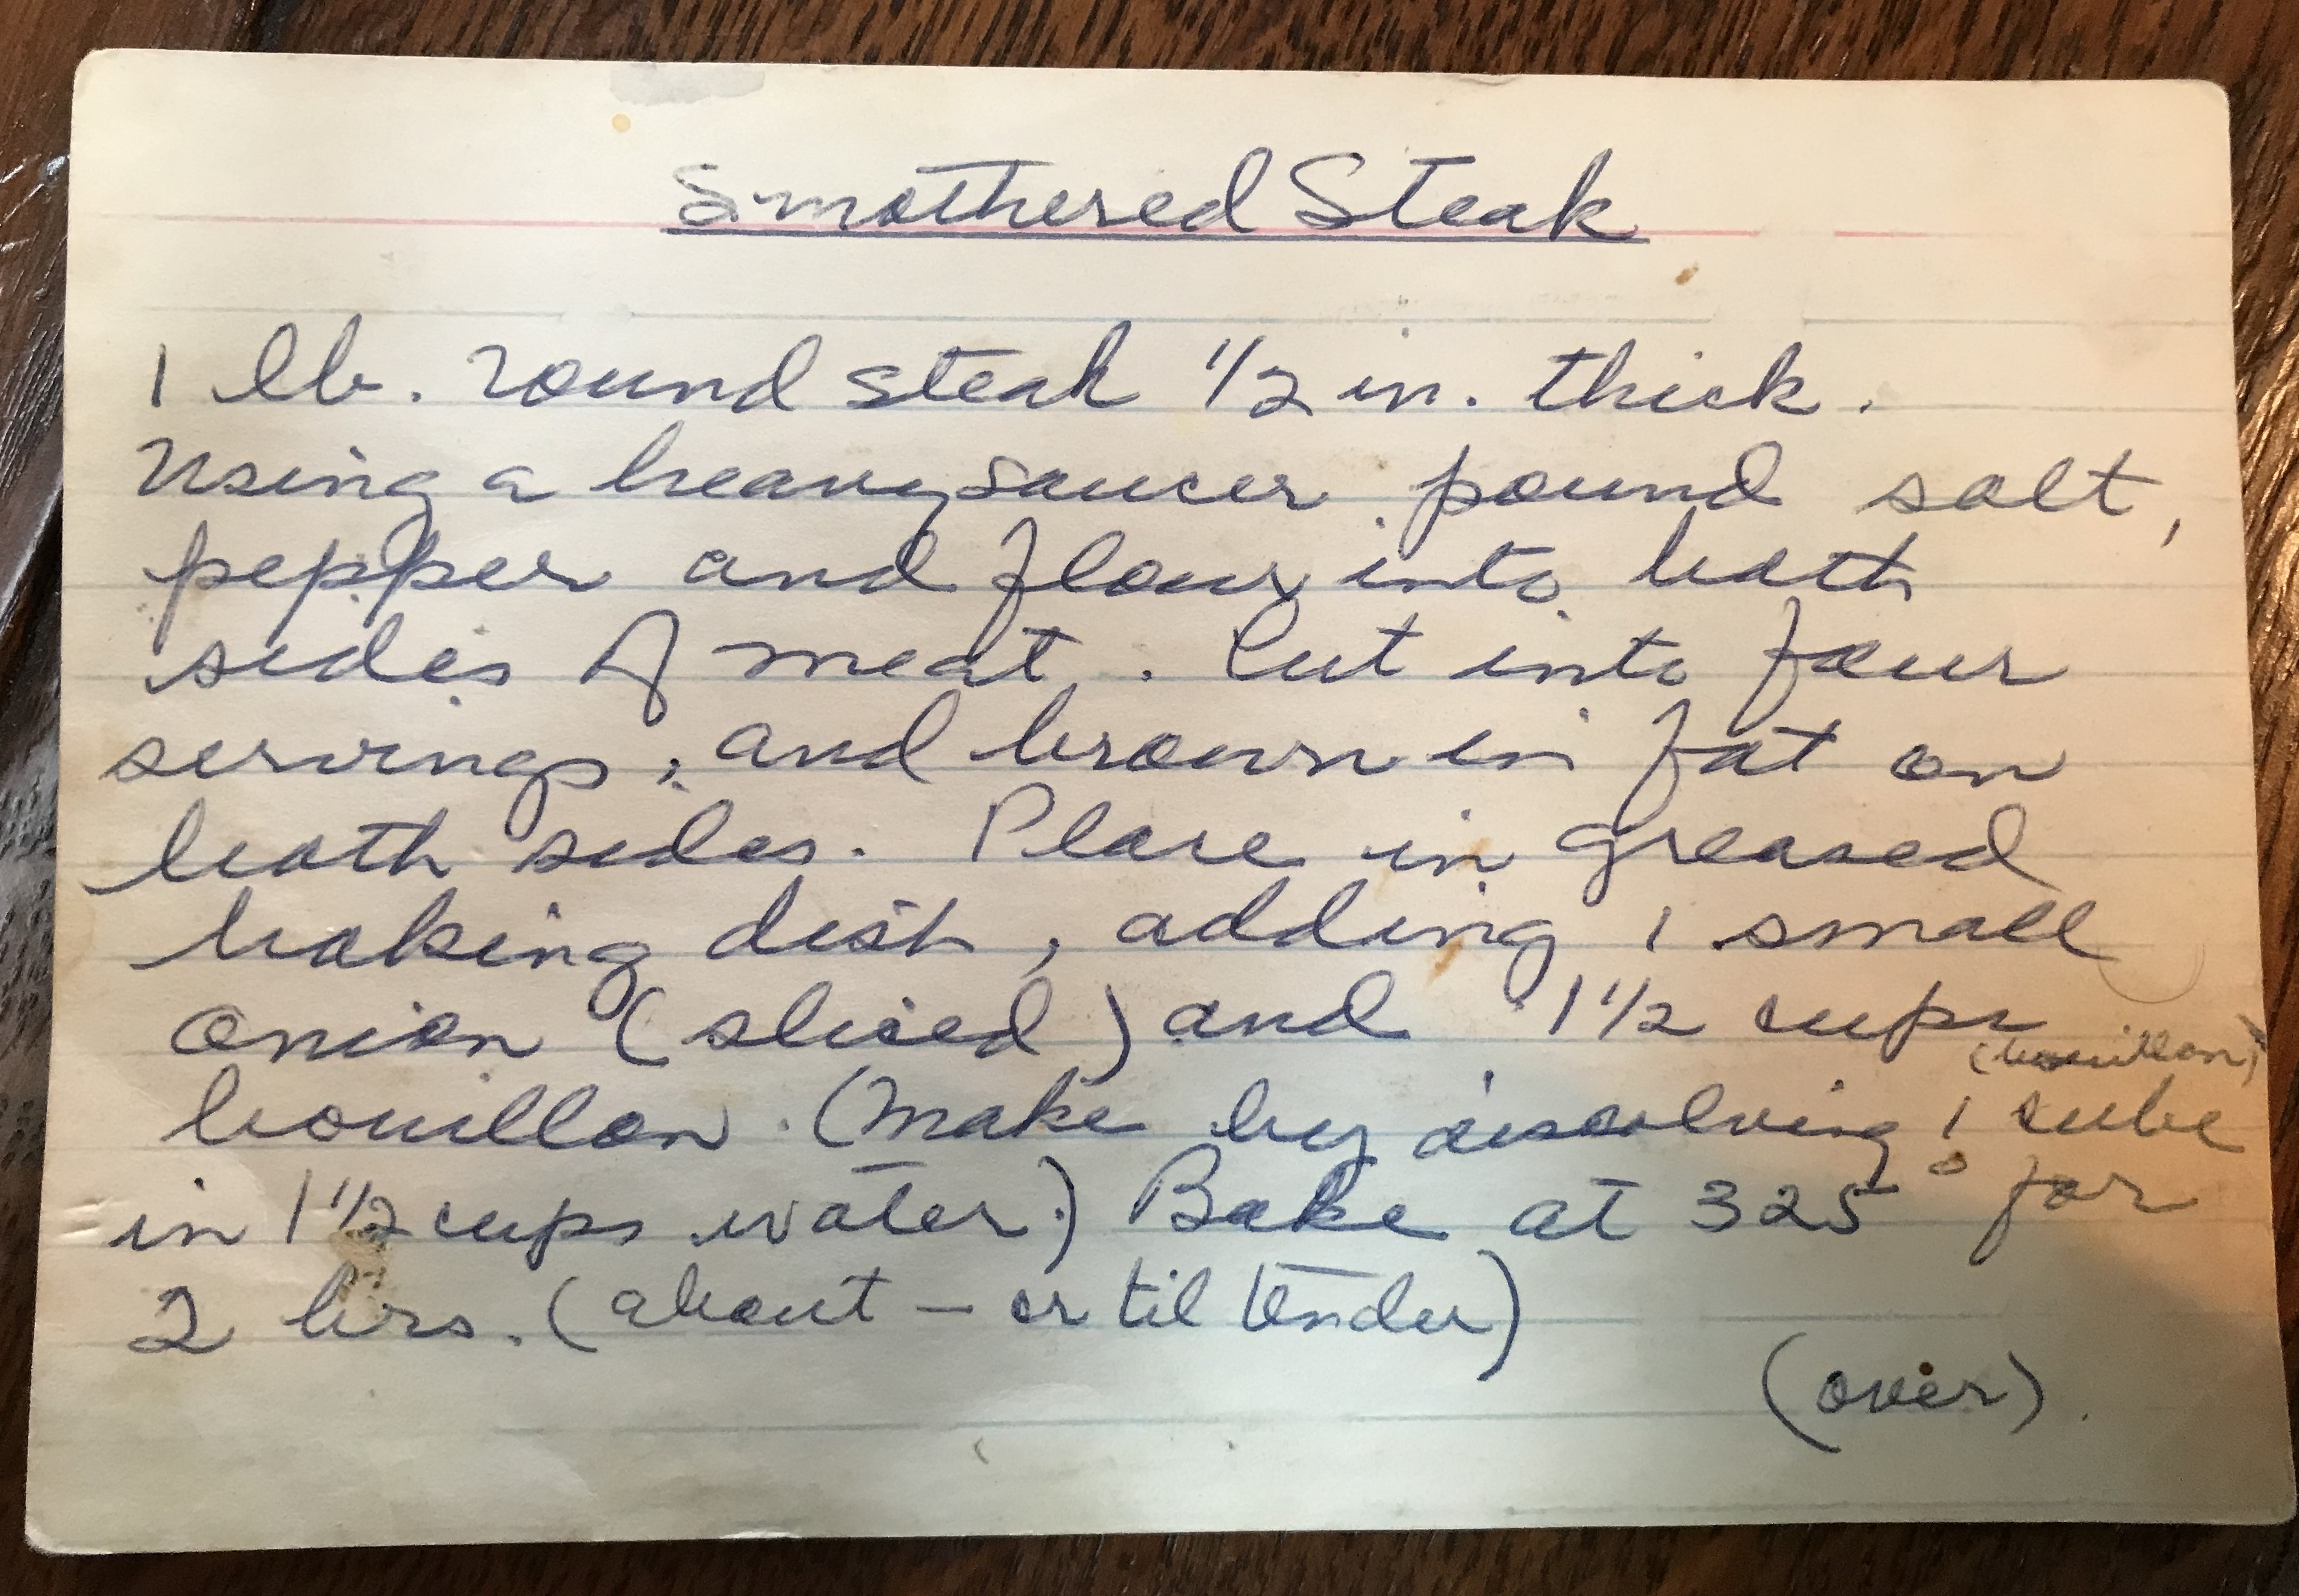 Smothered Steak
1 lb. round steak 1/2 in. thick.
Using a heavy saucer pound salt,
pepper and flour into both
sides of meat. Cut into four
servings, and brown in fat on
both sides. Place in greased
baking dish, adding 1 small
onion (sliced) and 1 1/2 cups
(bouillon)
bouillon. (Make by disolving 1 cube
in 1 1/2 cups water.) Bake at 325° for
2 hrs. (about — or til tender)
(over).